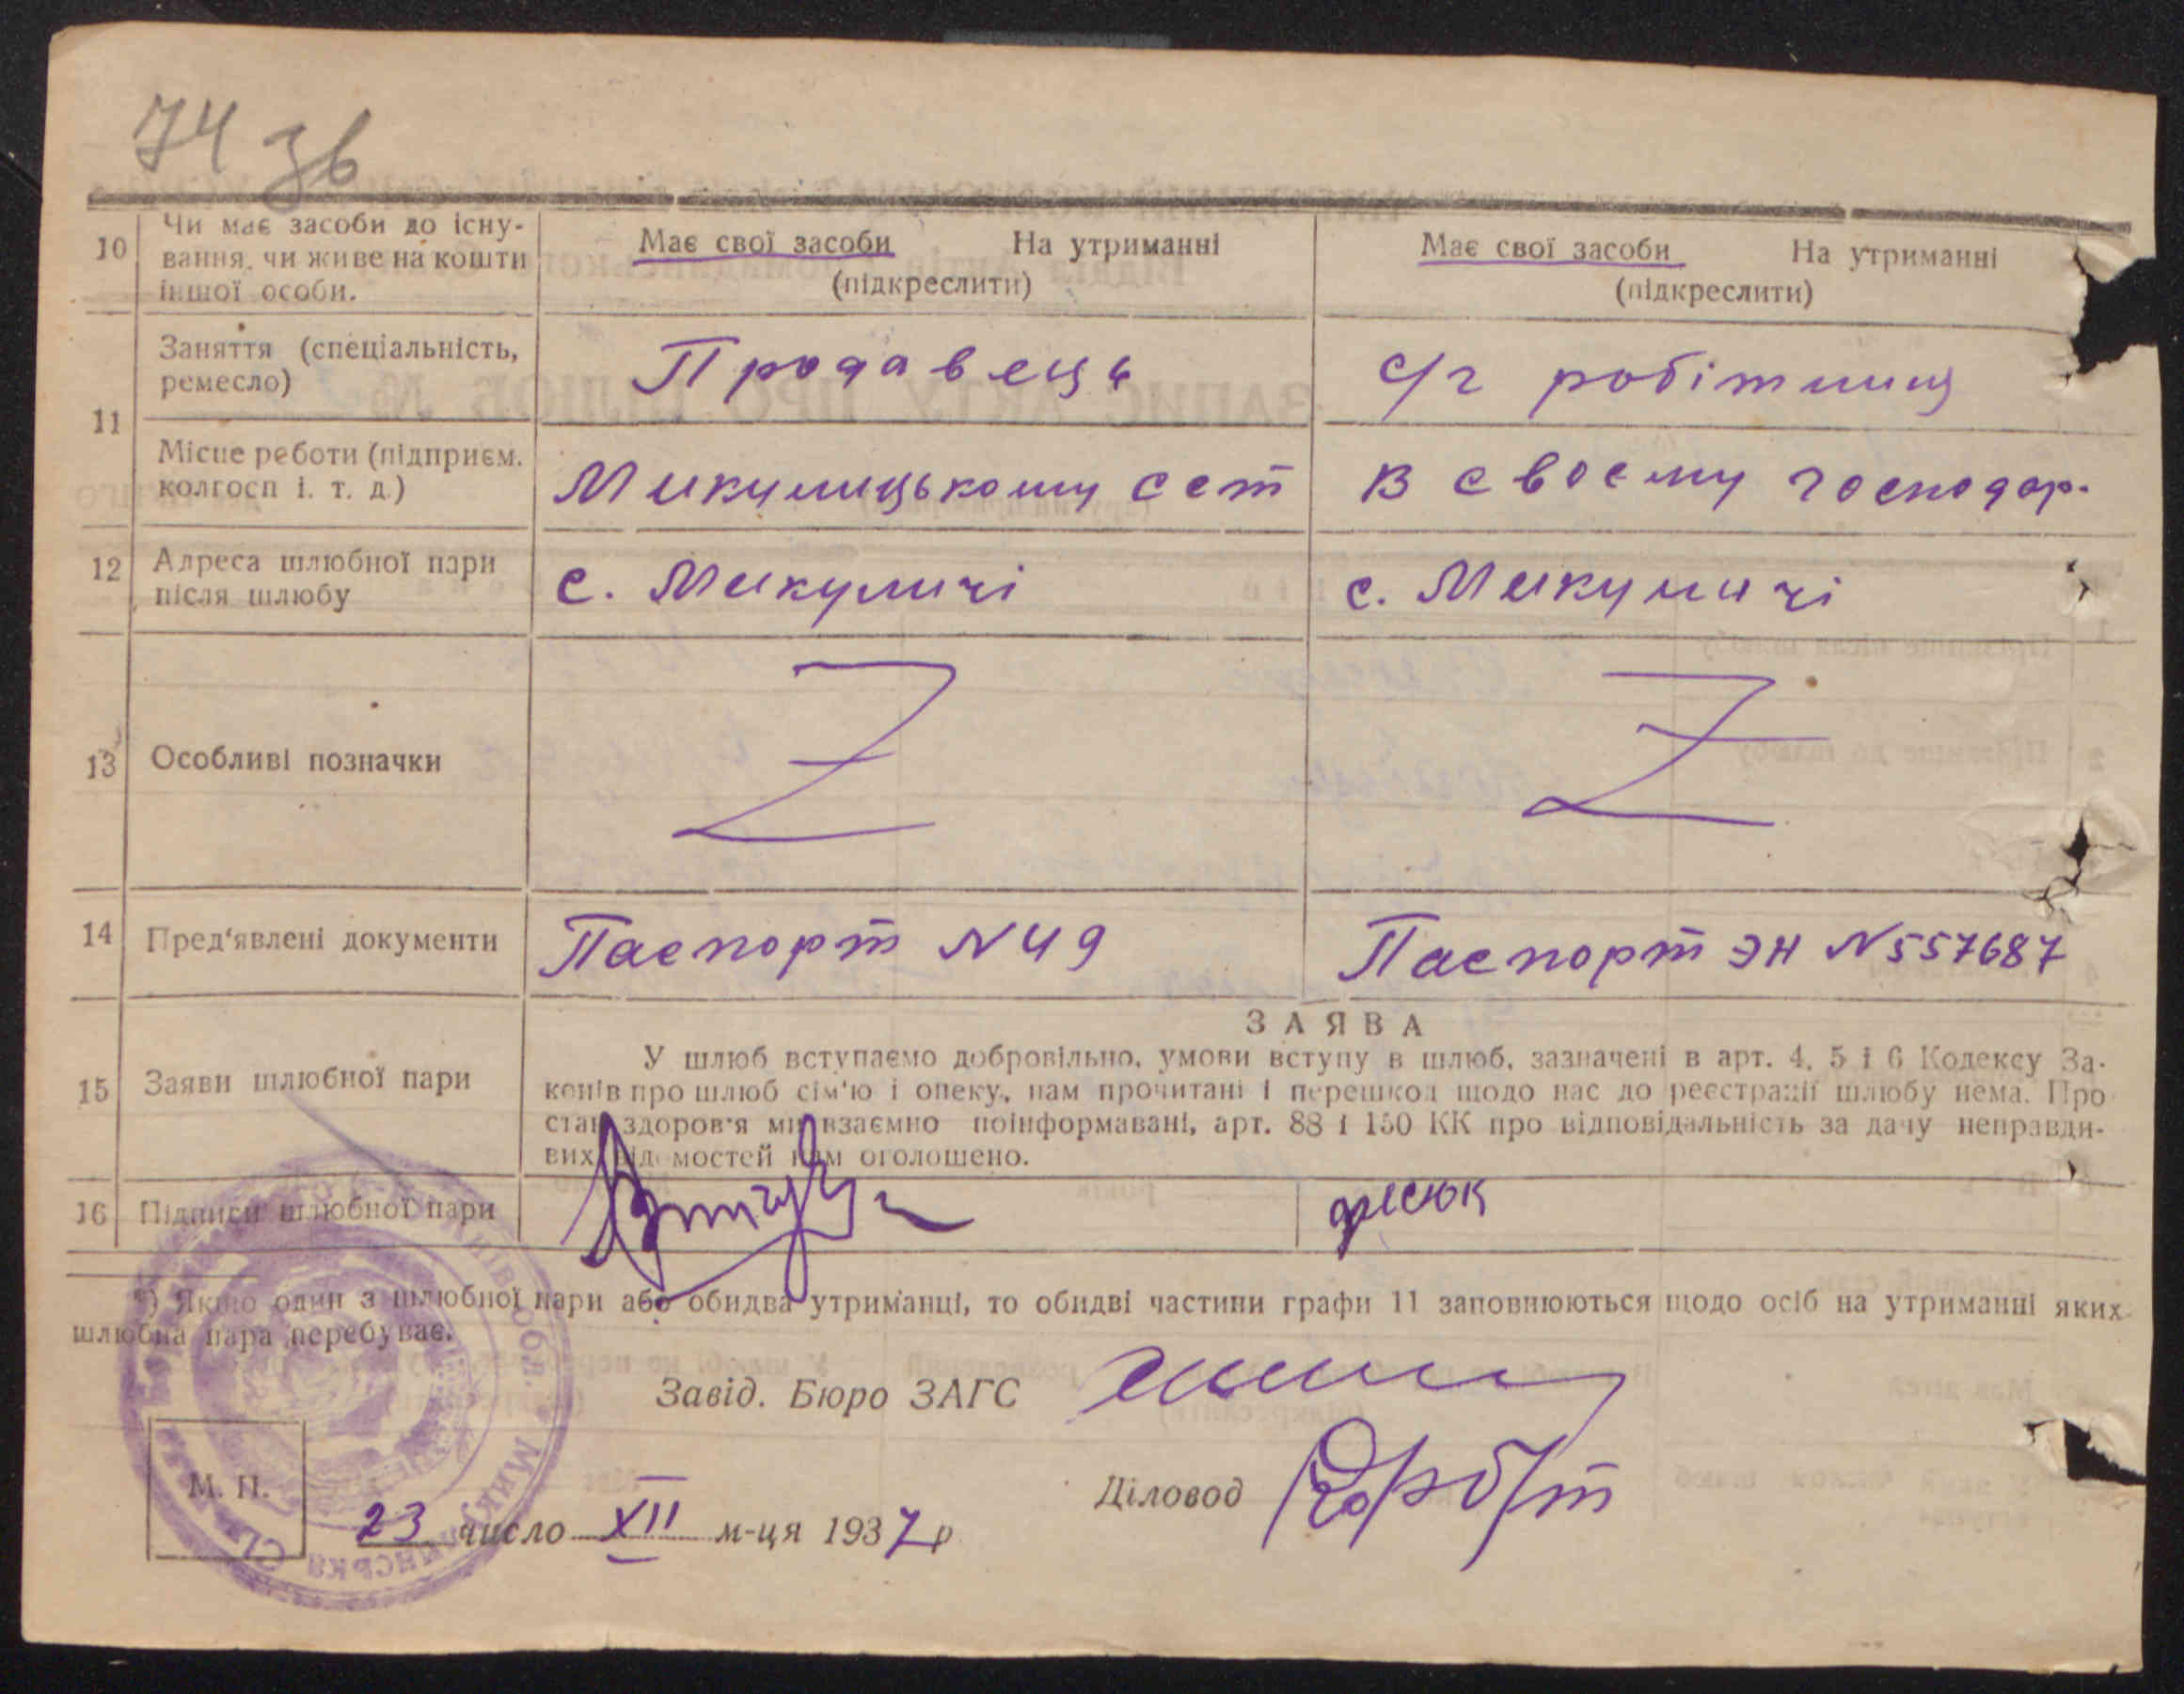 74 зв
10 Чи має засоби до існу-
вання, чи живе на кошти
іншої особи.
Має свої засоби На утриманні
(підкреслити)
Має свої засоби На утриманні
(підкреслити)
11 Заняття (спеціальність,
ремесло)
Продавець
с/г робітниц
Місце роботи (підприєм.
колгосп і. т. д.)
Микулицькому сст
в своєму господар.
12 Адреса шлюбної пари
після шлюбу
с. Микуличі
с. Микуличі
13 Особливі позначки
Z
Z
14 Пред'явлені документи
Паспорт N 49
Паспорт ЭН N 557687
15 Заяви шлюбної пари
ЗАЯВА
У шлюб вступаємо добровільно, умови вступу в шлюб, зазначені в арт. 4, 5 і 6 Кодексу За-
конів про шлюб сім'ю і опеку, нам прочитані і перешкод щодо нас до реєстрації шлюбу нема. Про
стан здоров'я ми взаємно поінформавані, арт. 88 і 150 КК про відповідальність за дачу неправди-
вих відомостей нам оголошено.
16 Підписи шлюбної пари
*) Якщо один з шлюбної пари або обидва утриманці, то обидві частини графи 11 заповнюються щодо осіб на утриманні яких
шлюбна пара перебуває.
Завід. Бюро ЗАГС
М. П.
Діловод
23 число XII м-ця 1937 р